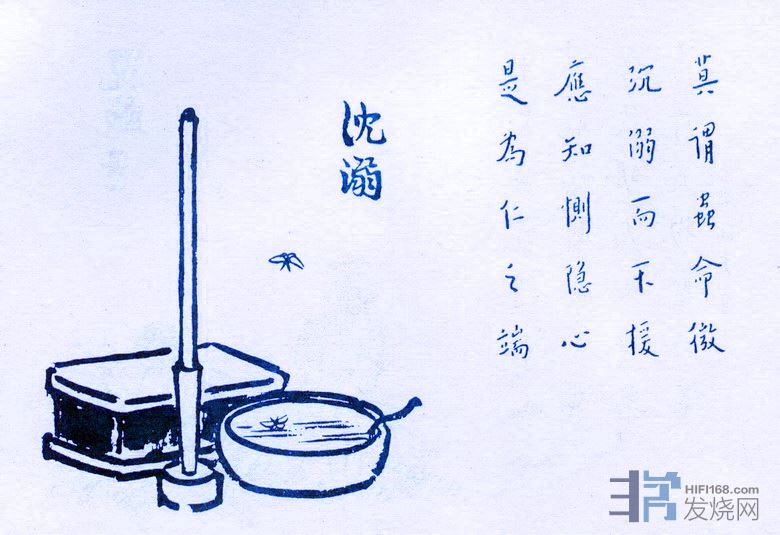 沈溺
莫謂蟲命微
沉溺而不援
應知惻隱心
是為仁之端
HIFI168.com
发烧网